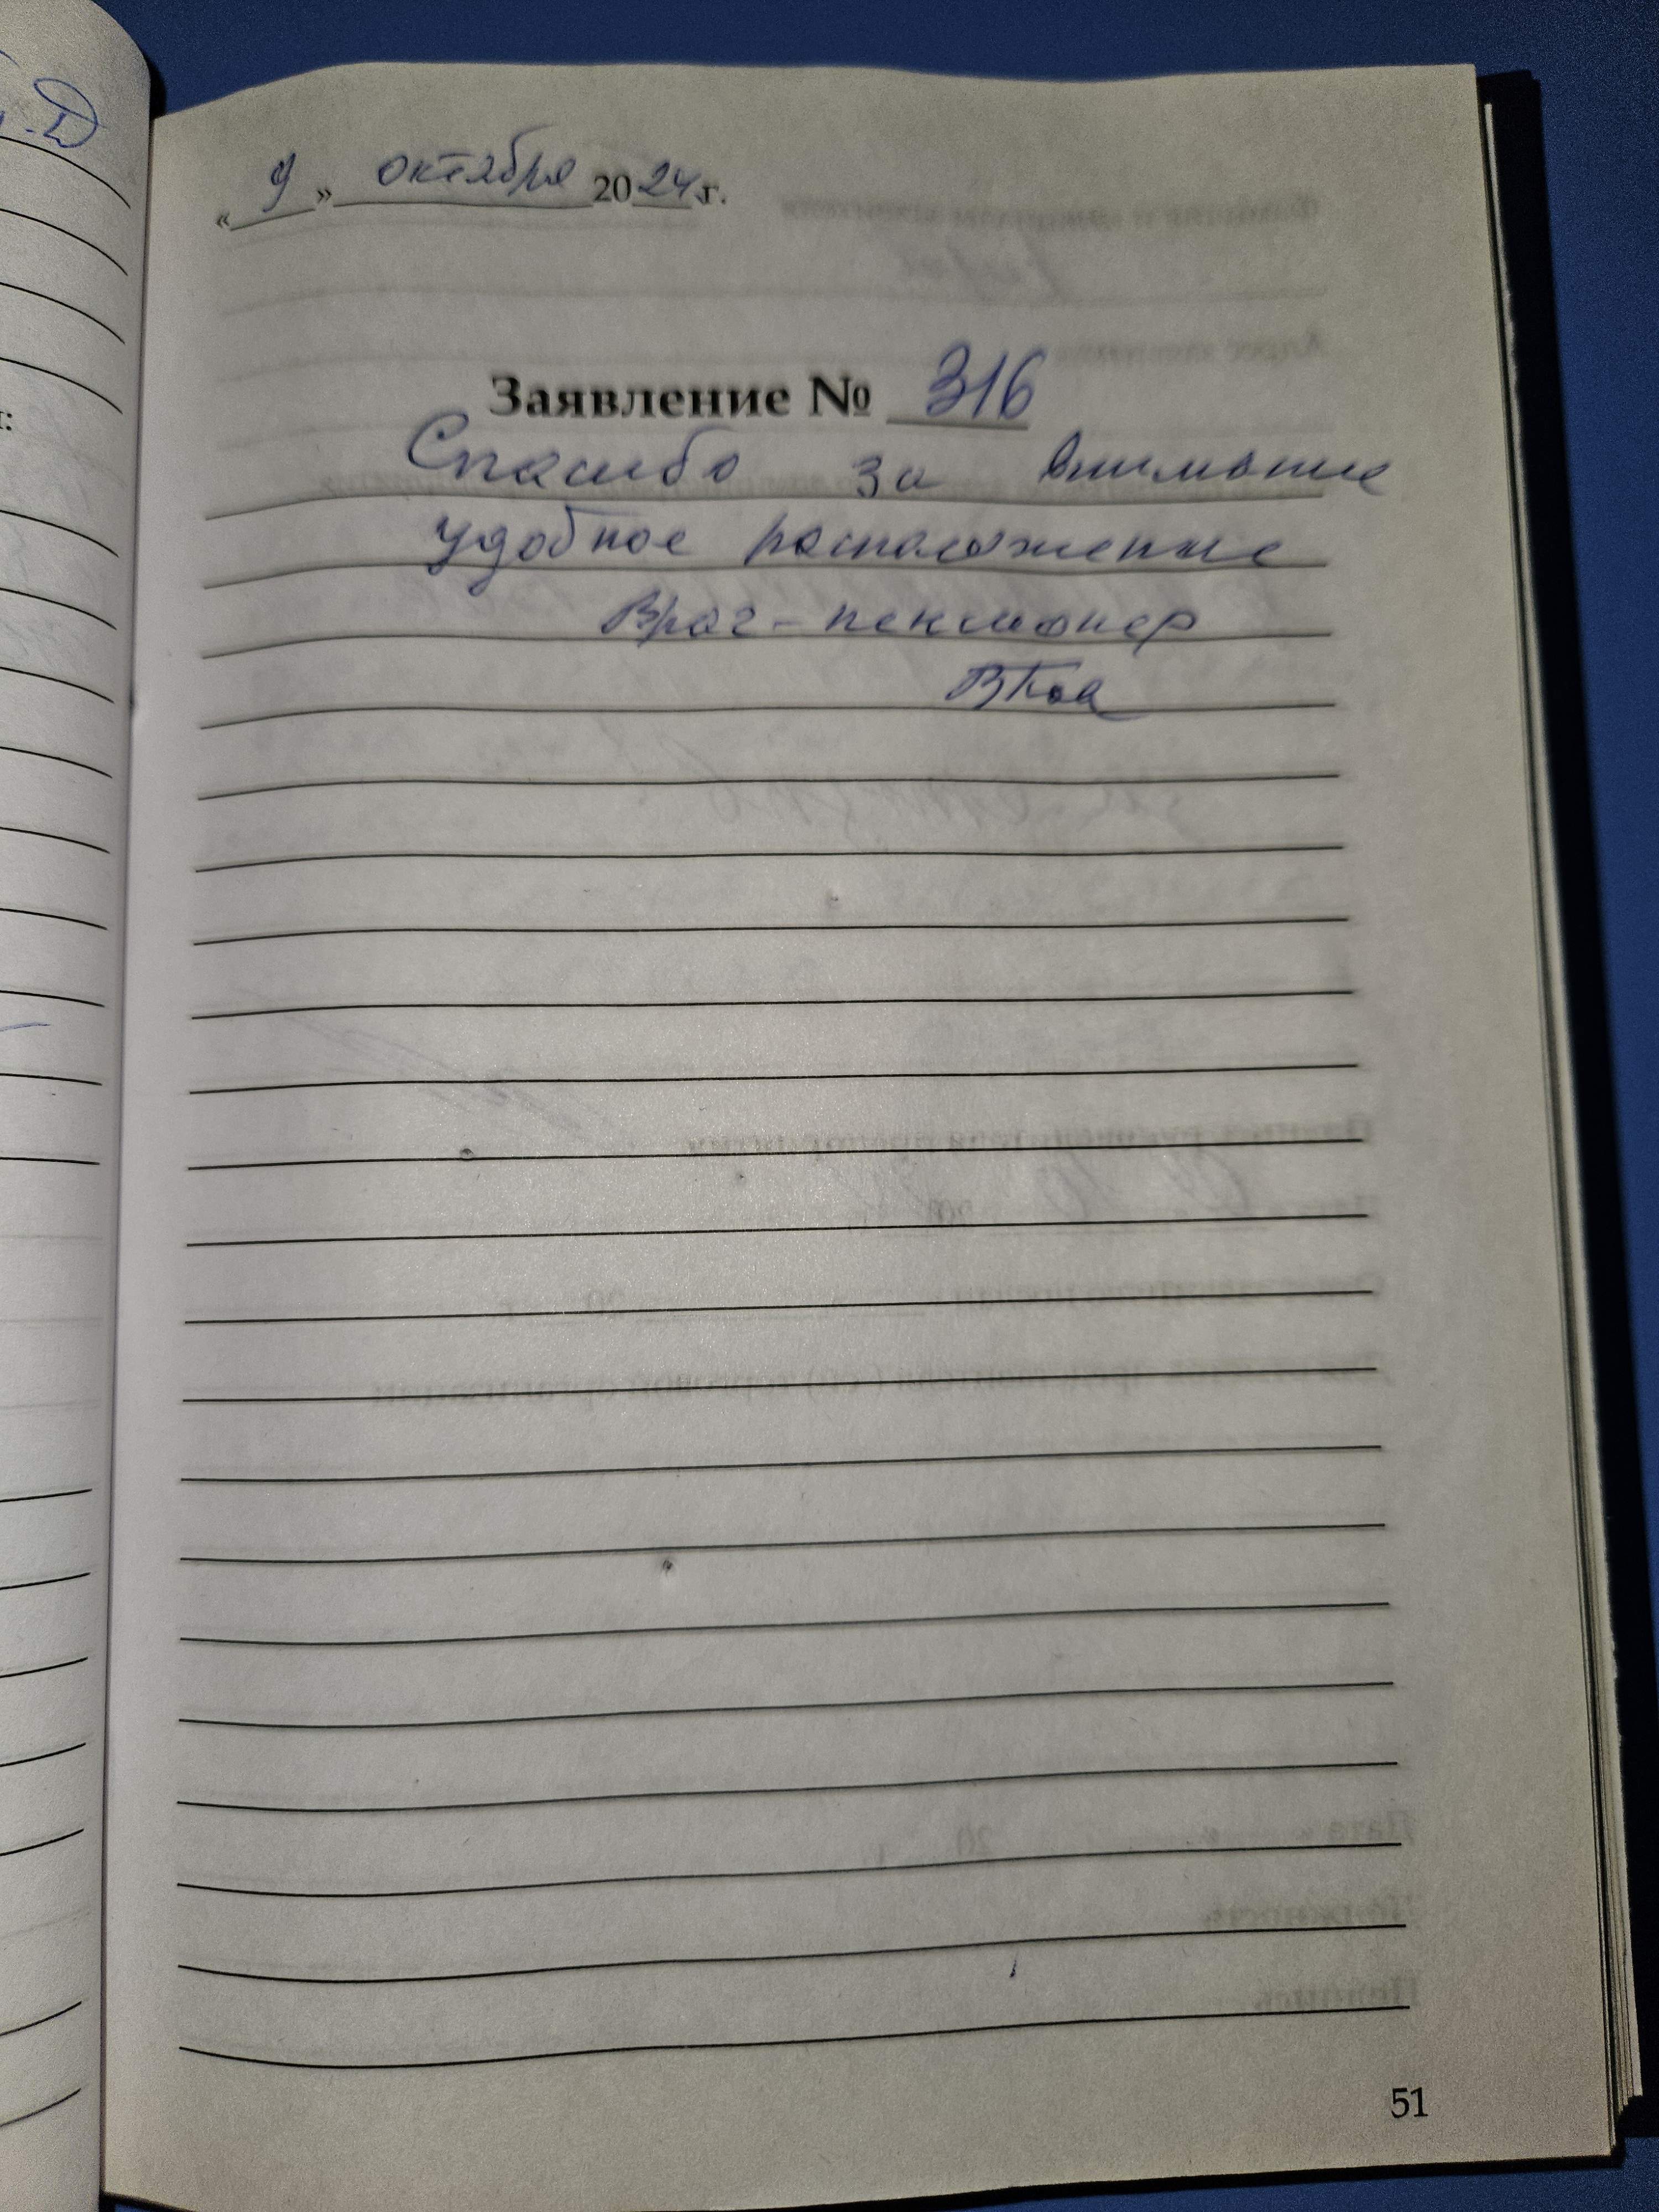 « 9 » октября 2024 г.
Заявление № 316
Спасибо за внимание
удобное расположение
Врач - пенсионер
51